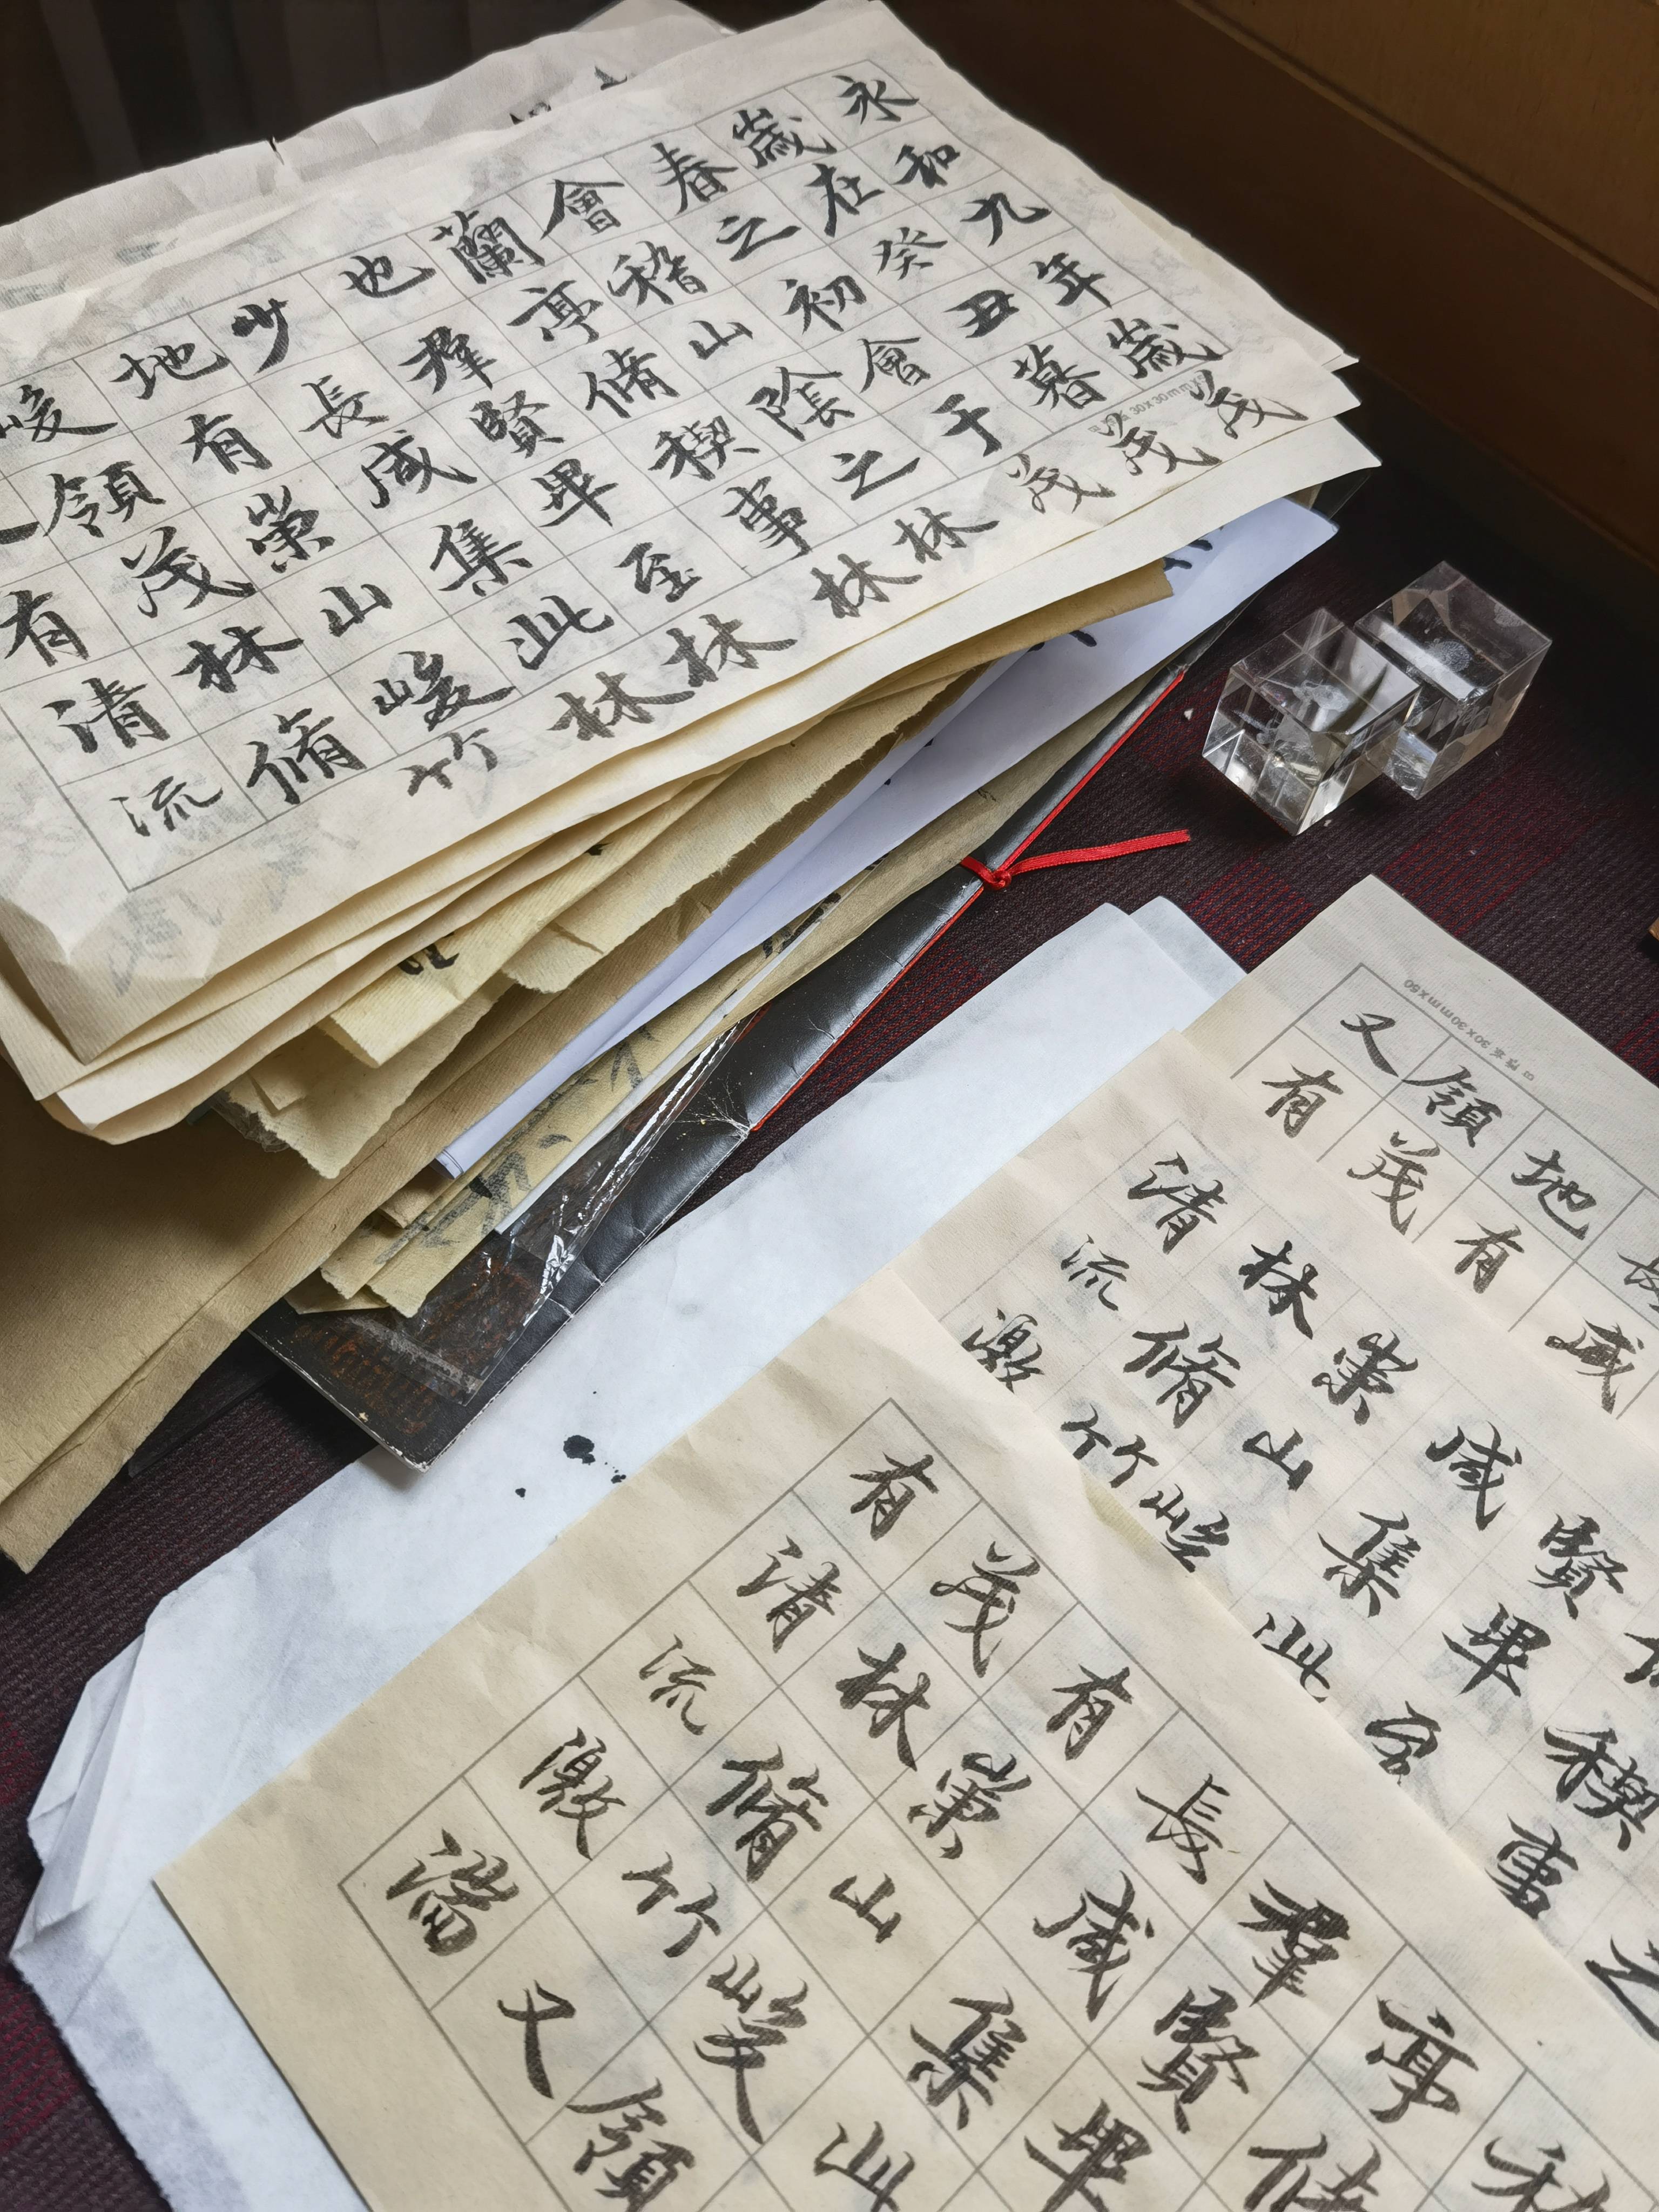 永和九年歳茂
歳在癸丑暮茂
春之初會于茂
會稽山陰之林
蘭亭脩稧事林
也羣賢畢至林
少長咸集此林
地有崇山峻竹
峻領茂林脩
有清流
咸
地有
領茂
又有
之
稧事
賢畢至
咸集此
崇山峻
林脩竹
清流激
亭脩
羣賢畢
長咸集此
有崇山峻領
茂林脩竹又
有清流激湍